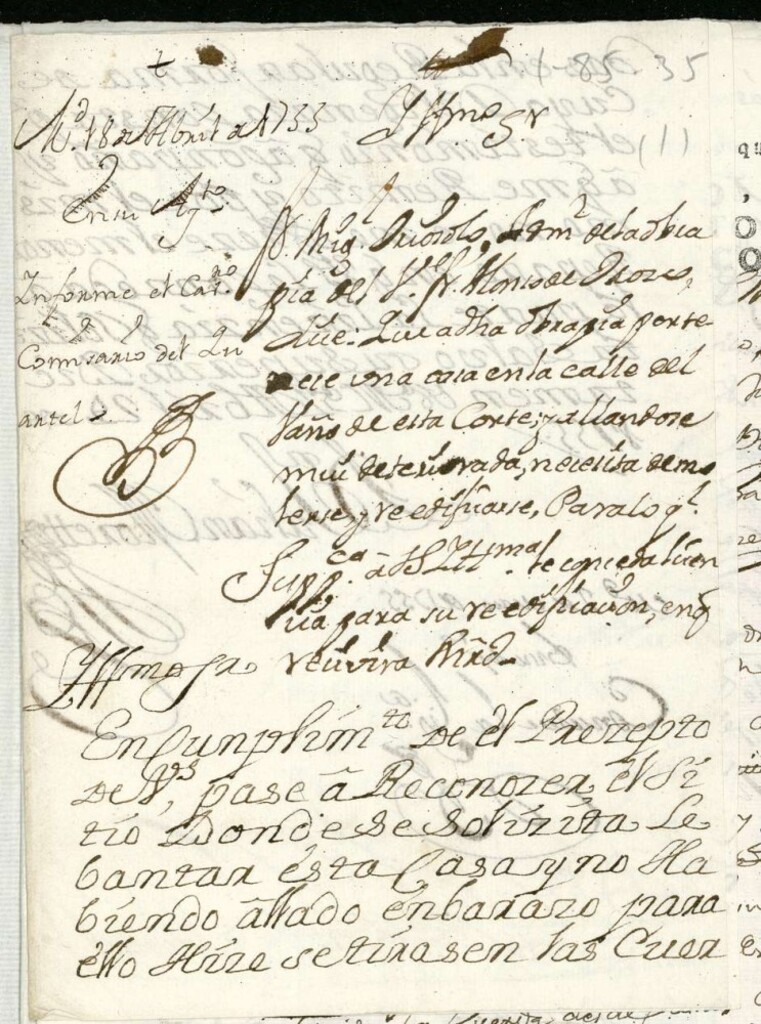 1-85 35
(11)
M.d 18 de Abril de 1733
Yllmo Sr
En su Ay.to
Informe el Cav.ro
Comisario del Qu
artel
fr. Mig.l , Adm.r de la obra
pia del V.e fr. Alonso de Orozco,
Dice: Que a dha obra pia perte-
nece una casa en la calle del
Vaño de esta Corte; y allandose
mui deteriorada, necesita demo
lerse, y reedificarse, Para lo q.l
Supp.ca â V.S. Ill.ma le conceda licen
cia para su reedificacion, en q
recivira
Yllmo Sr
En Cunplim.to De el Prezepto
De V.S, pase â Reconozer el Si
tio Donde se Solizita Le
bantar ésta Casa y no Ha
biendo âllado énbarazo para
éllo Hize se tirasen las Cuer